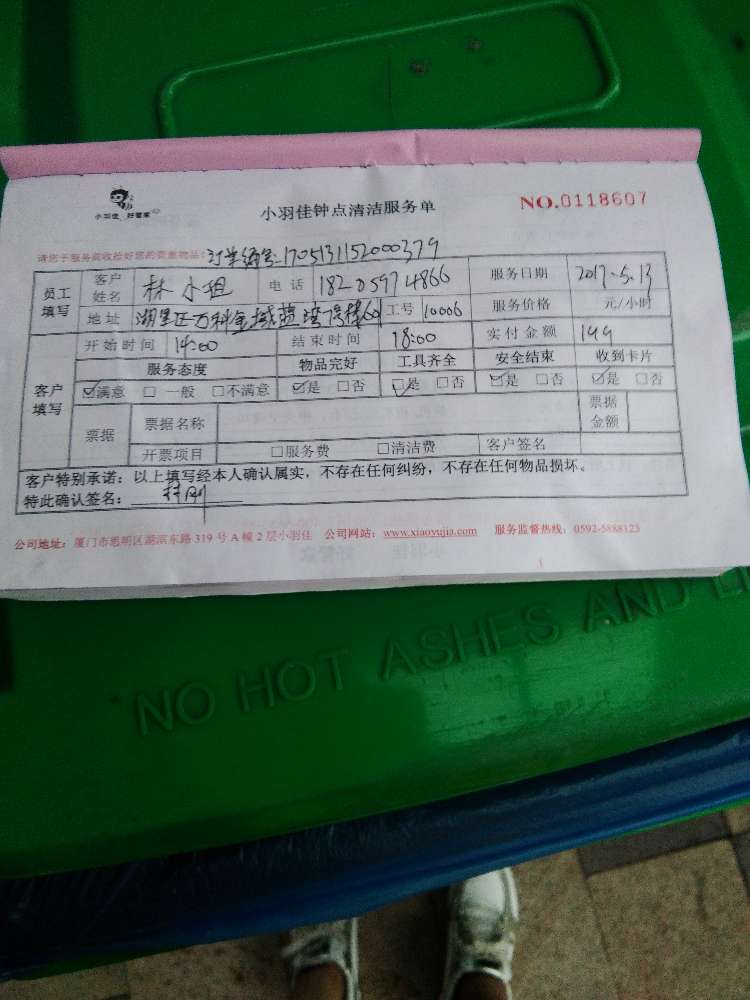 小羽佳 好管家
小羽佳钟点清洁服务单
NO.0118607
请您于服务前收拾好您的贵重物品！订单编号:1705131152000379
员工填写 客户姓名 林小姐 电话 18205974866 服务日期 2017.5.13
地址 湖里区万科金域蓝湾 工号 10006 服务价格 元/小时
开始时间 14:00 结束时间 18:00 实付金额 144
客户填写 服务态度 物品完好 工具齐全 安全结束 收到卡片
☑满意 □一般 □不满意 ☑是 □否 ☑是 □否 ☑是 □否 ☑是 □否
票据 票据名称 票据金额
开票项目 □服务费 □清洁费 客户签名
客户特别承诺：以上填写经本人确认属实，不存在任何纠纷，不存在任何物品损坏。
特此确认签名：
公司地址：厦门市思明区湖滨东路319号A幢2层小羽佳 公司网站：www.xiaoyujia.com 服务监督热线：0592-5888123
NO HOT ASHES AND LI